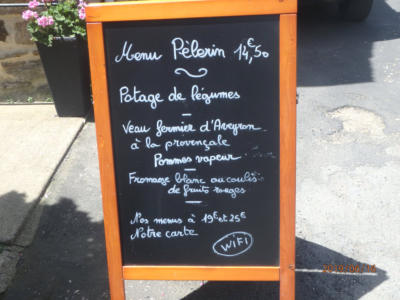 Menu Pèlerin 14€,50
Potage de légumes
Veau fermier d'Aveyron
à la provençale
Pommes vapeur
Fromage blanc au coulis
de fruits rouges
Nos menus à 19€ et 25€
Notre carte
WiFi